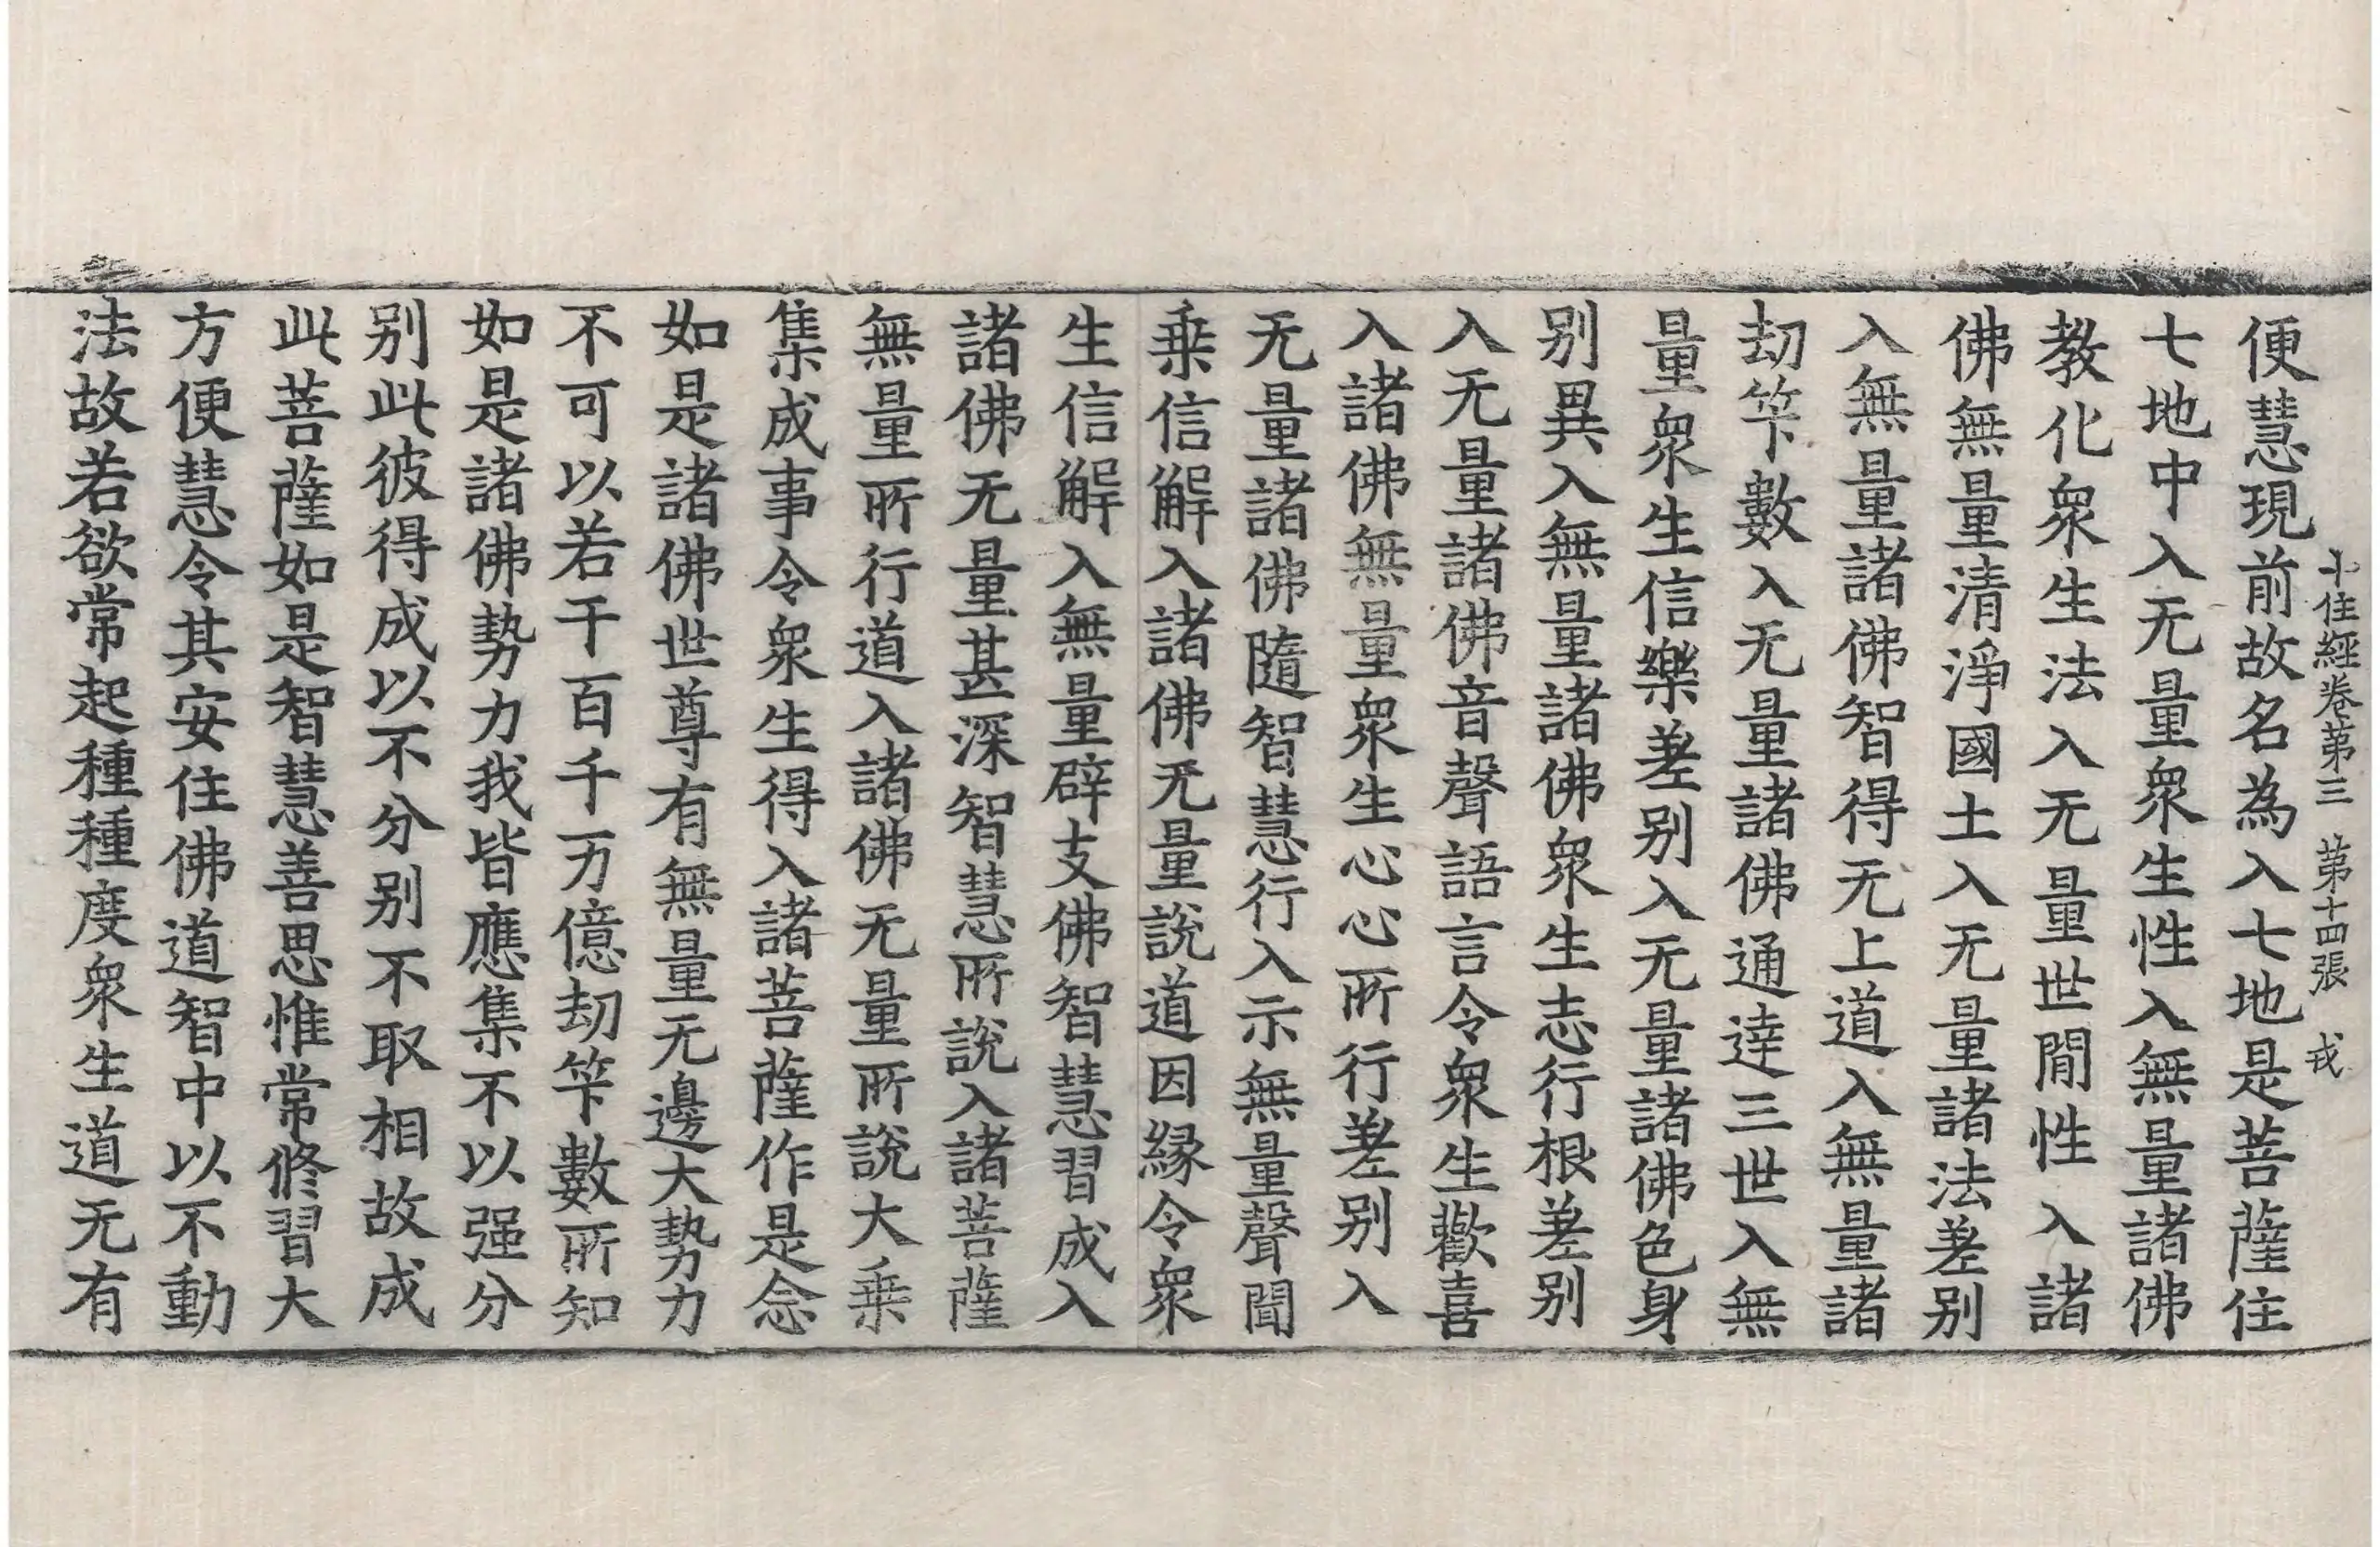 十住經卷第三 第十四張 戎
便慧現前故名為入七地是菩薩住
七地中入无量衆生性入無量諸佛
教化衆生法入无量世閒性入諸
佛無量清淨國土入无量諸法差别
入無量諸佛智得无上道入無量諸
劫笇數入无量諸佛通達三世入無
量衆生信樂差别入无量諸佛色身
别異入無量諸佛衆生志行根差别
入无量諸佛音聲語言令衆生歡喜
入諸佛無量衆生心心所行差别入
无量諸佛隨智慧行入示無量聲聞
乗信解入諸佛无量說道因緣令衆
生信解入無量辟支佛智慧習成入
諸佛无量甚深智慧所說入諸菩薩
無量所行道入諸佛无量所說大乗
集成事令衆生得入諸菩薩作是念
如是諸佛世尊有無量无邊大勢力
不可以若干百千万億劫笇數所知
如是諸佛勢力我皆應集不以强分
别此彼得成以不分别不取相故成
此菩薩如是智慧善思惟常修習大
方便慧令其安住佛道智中以不動
法故若欲常起種種度衆生道无有